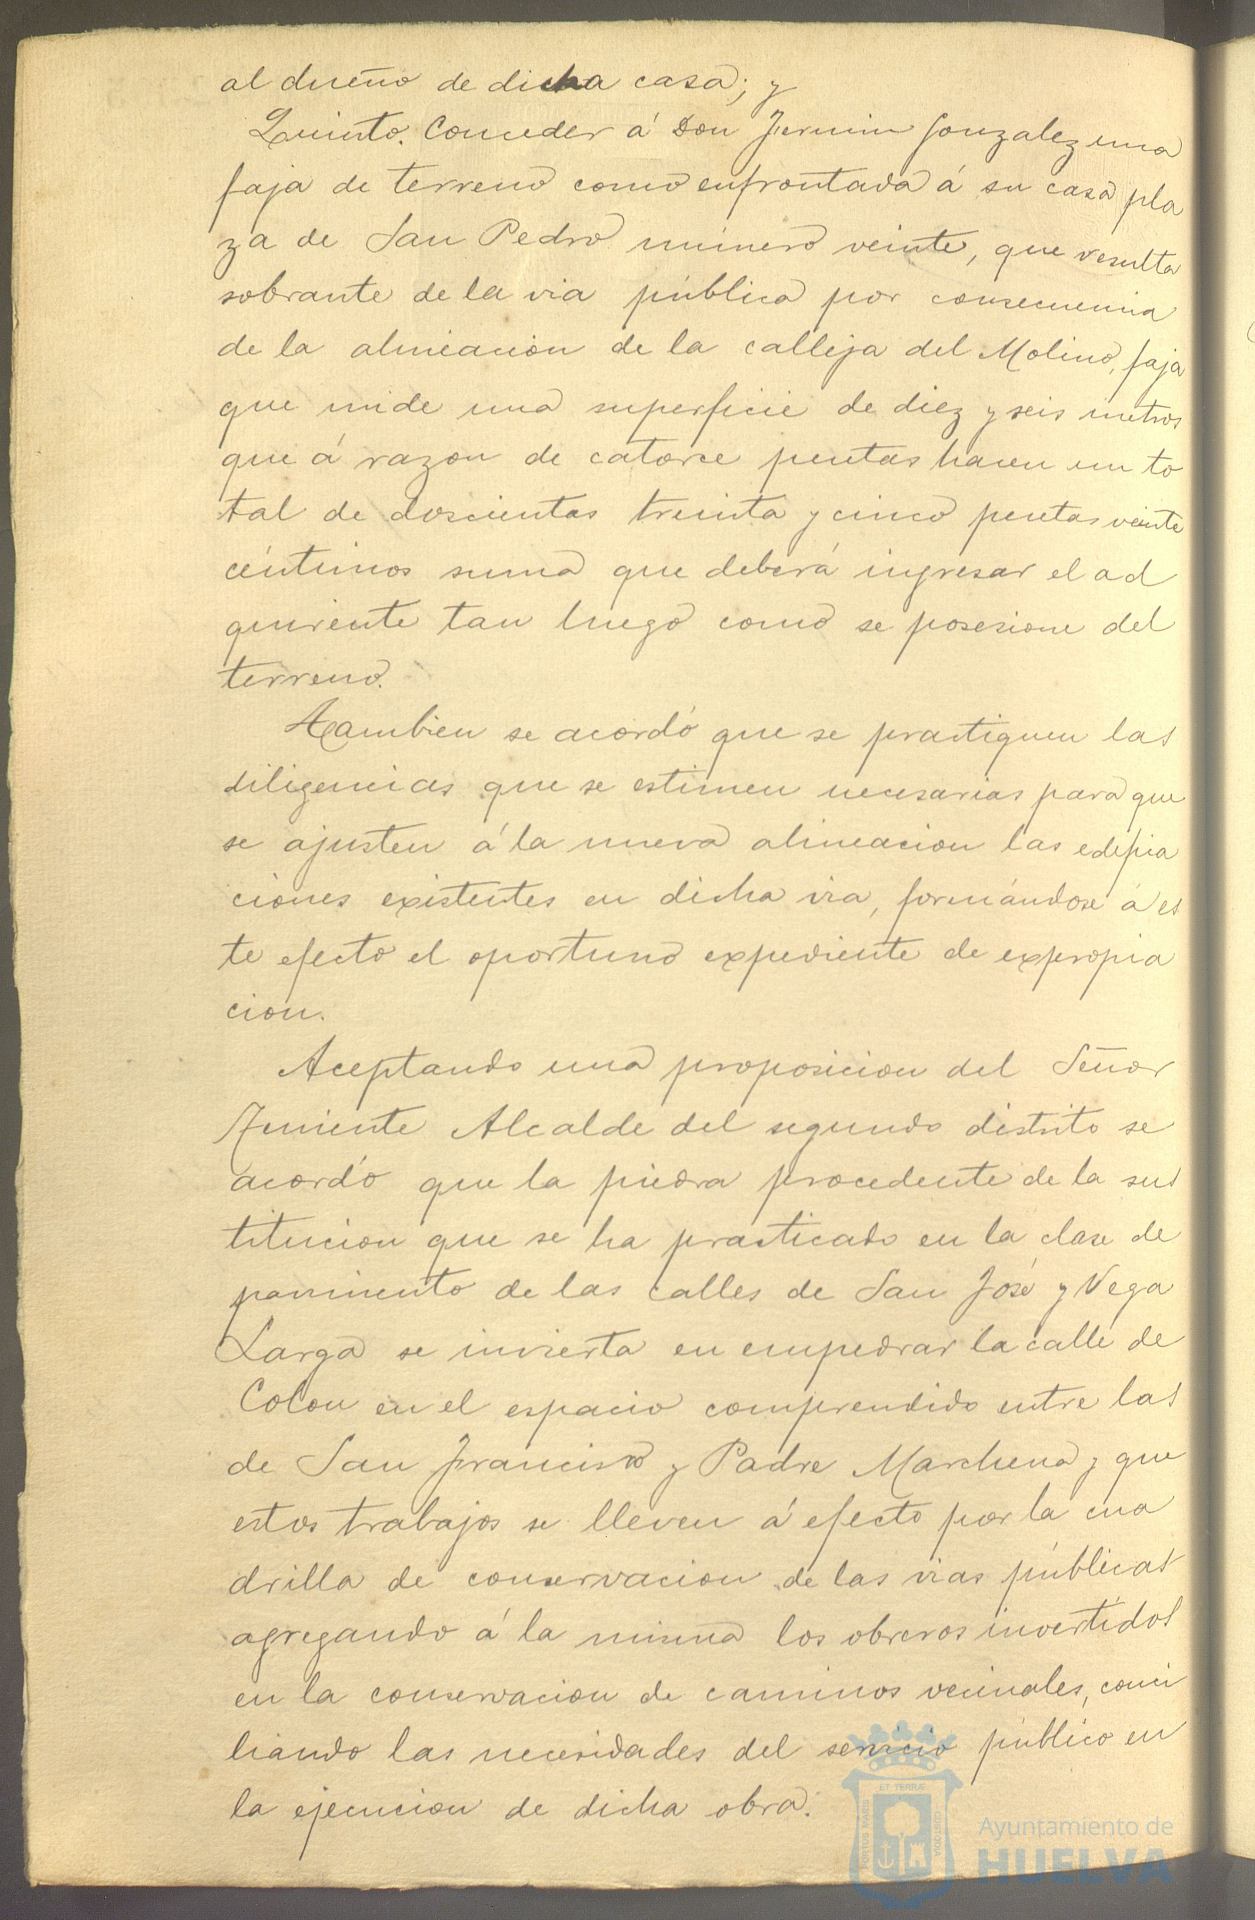 al dueño de dicha casa; y
Quinto. Conceder á Don Fermin Gonzalez una
faja de terreno como enfrontada á su casa pla
za de San Pedro número veinte, que resulta
sobrante de la via pública por consecuencia
de la alineacion de la calleja del Molino, faja
que mide una superficie de diez y seis metros
que á razon de catorce pesetas hacen un to
tal de doscientas treinta y cinco pesetas veinte
céntimos suma que deberá ingresar el ad
quirente tan luego como se posesione del
terreno.
Tambien se acordó que se practiquen las
diligencias que se estimen necesarias para que
se ajusten á la nueva alineacion las edifica
ciones existentes en dicha via, formándose á es
te efecto el oportuno expediente de expropia
cion.
Aceptando una proposicion del Señor
Teniente Alcalde del segundo distrito se
acordó que la piedra procedente de la sus
titucion que se ha practicado en la clase de
pavimento de las calles de San José y Vega
Larga se invierta en empedrar la calle de
Colon en el espacio comprendido entre las
de San Francisco y Padre Marchena y que
estos trabajos se lleven á efecto por la cua
drilla de conservacion de las vias públicas
agregando á la misma los obreros invertidos
en la conservacion de caminos vecinales, conci
liando las necesidades del servicio público en
la ejecucion de dicha obra.
PORTUS MARIS ET TERRÆ CUSTODIA
Ayuntamiento de
HUELVA